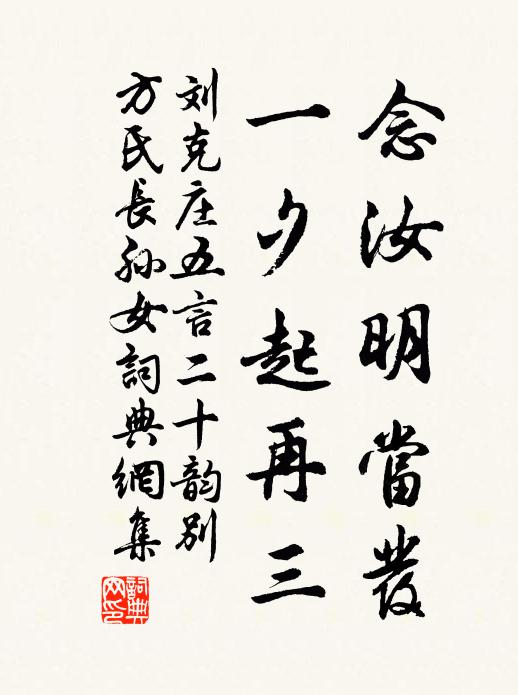 念汝明當發
一夕起再三
刘克庄五言二十韵别
方氏長孙女詞典網集
詞典
网印